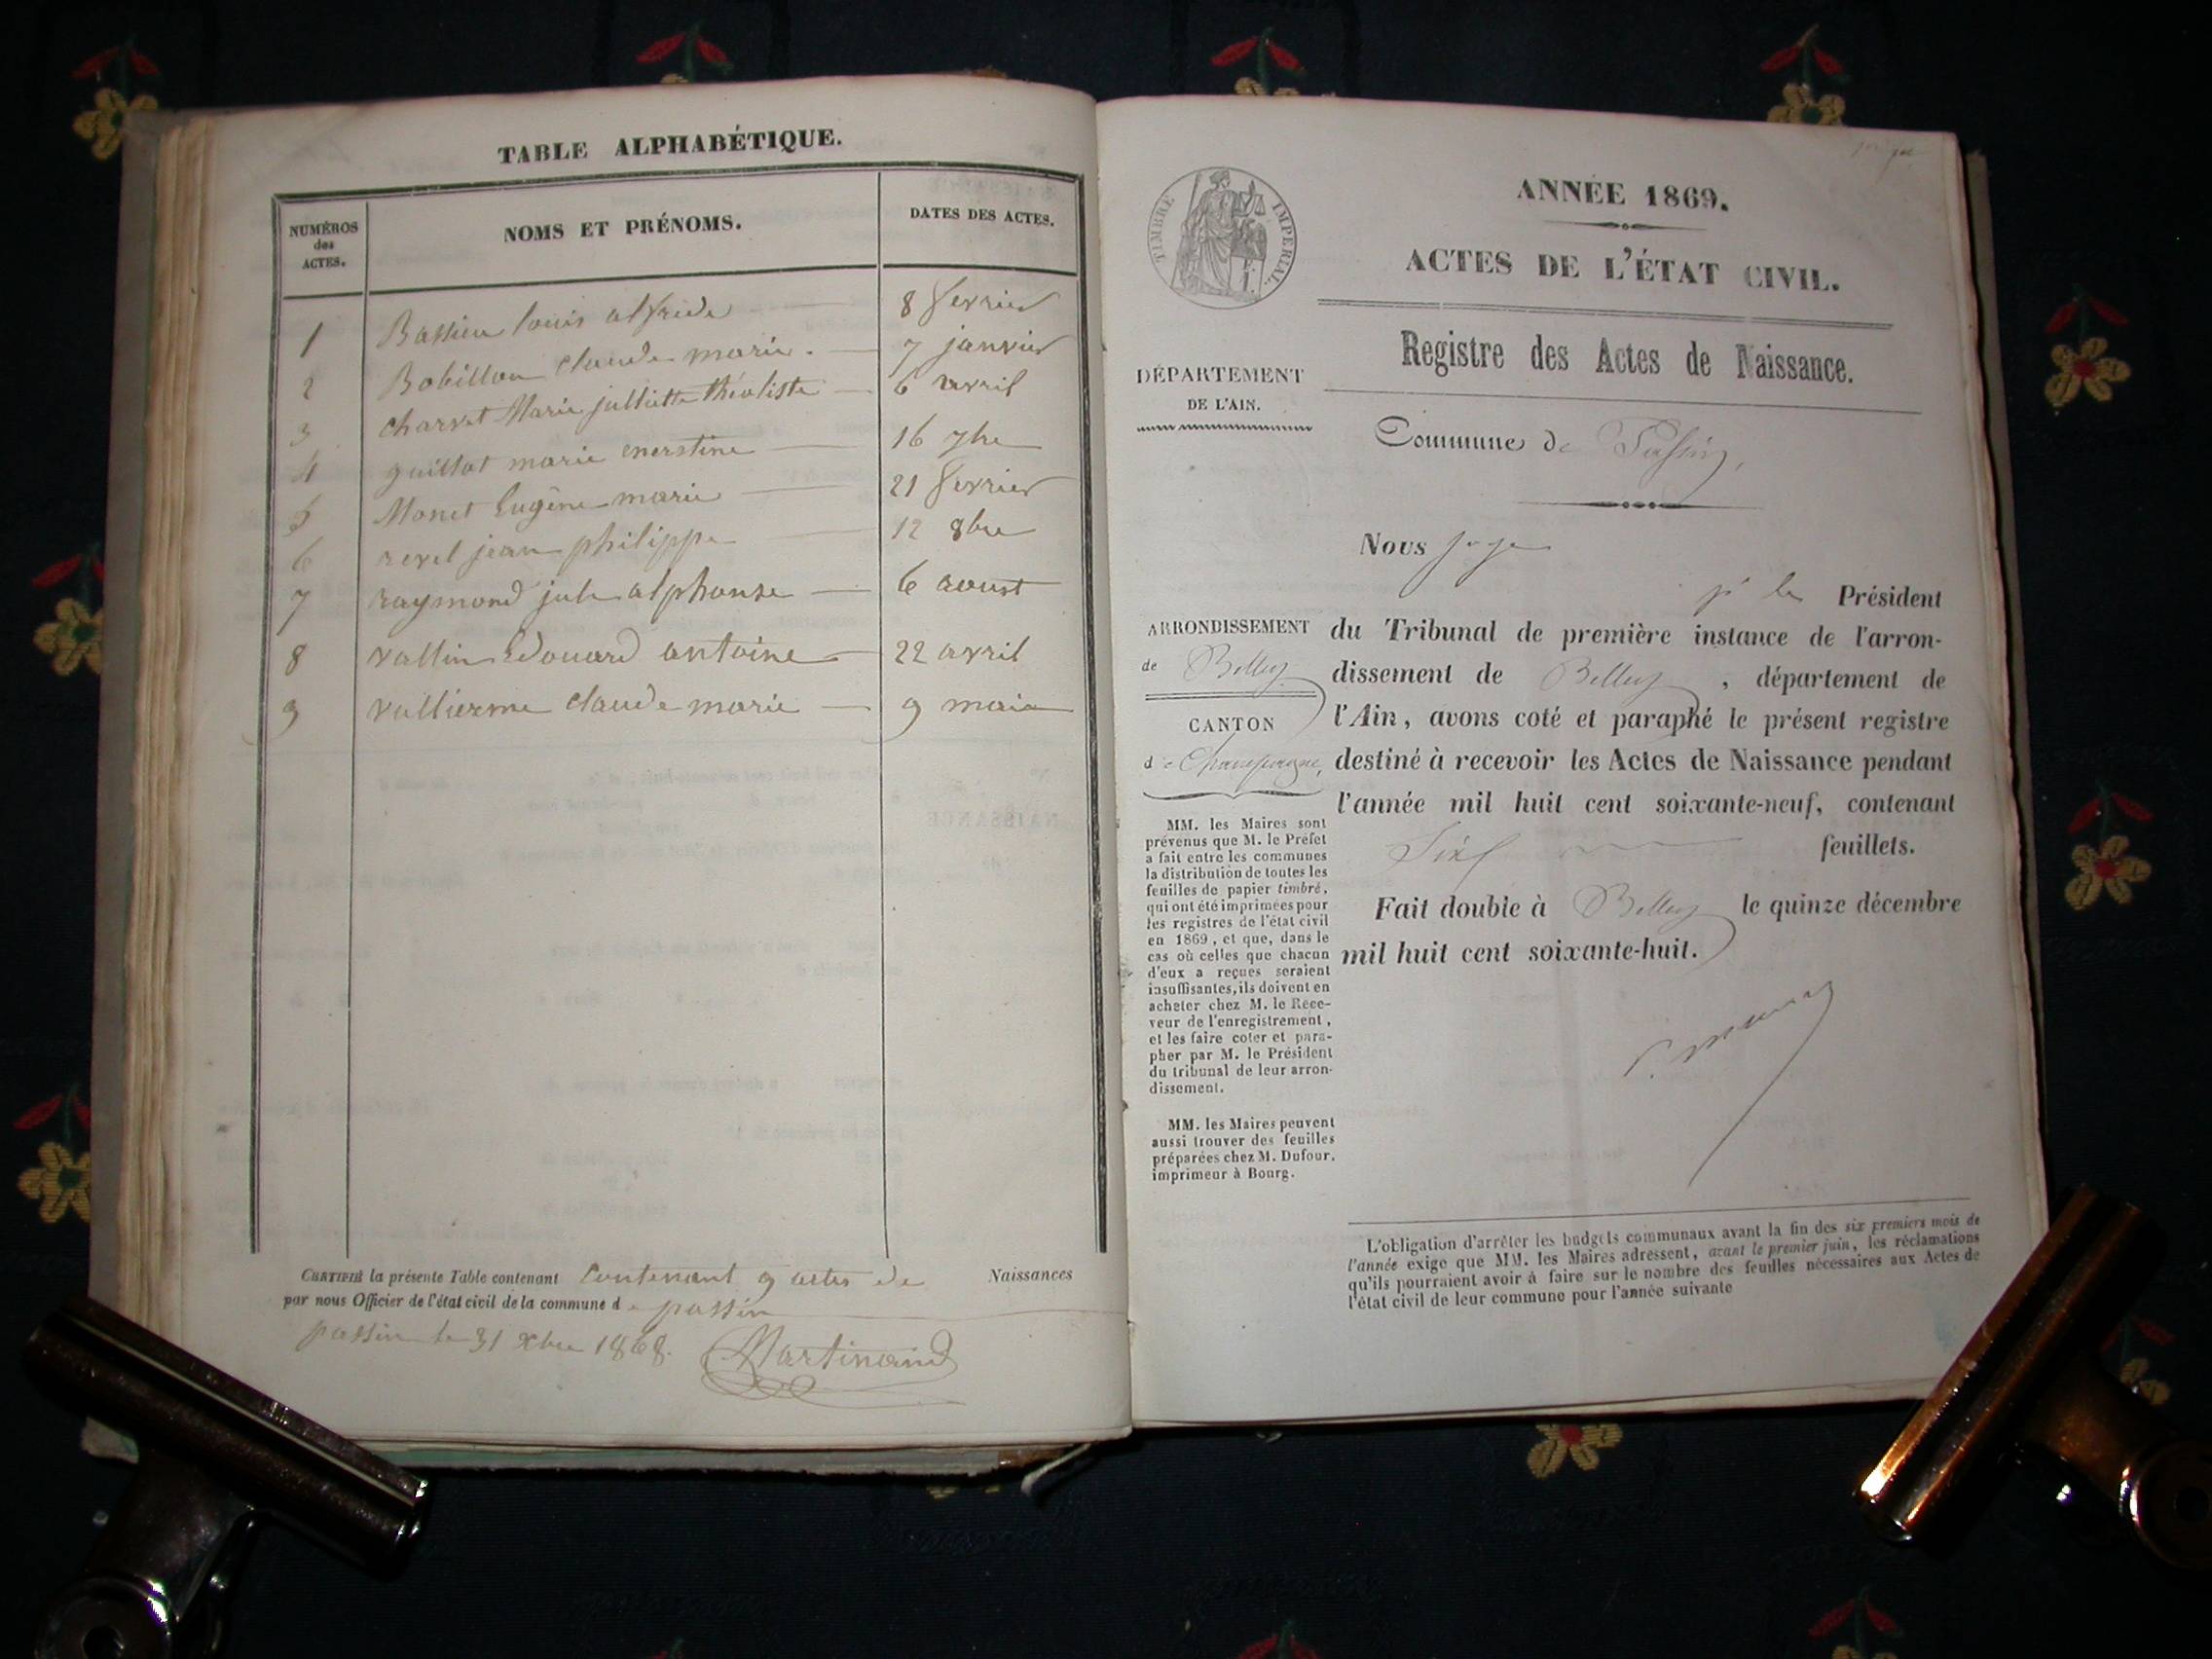 TABLE ALPHABÉTIQUE.
NUMÉROS
des
ACTES.
NOMS ET PRÉNOMS.
DATES DES ACTES.
1 Bassieu louis alfride 8 fevrier
2 Bobillon claude marie. 7 janvier
3 charvet Marie julliette théoliste 6 avril
4 guillot marie enerstine 16 7bre
5 Monet Eugène marie 21 fevrier
6 revel jean philippe 12 8bre
7 raymond jule alphonse 6 aoust
8 vallin Edouard antoine 22 avril
9 vullierme claude marie 9 mai
CERTIFIÉ la présente Table contenant contenant 9 actes de Naissances
par nous Officier de l'état civil de la commune de passin
passin le 31 xbre 1868. Martinand
TIMBRE IMPERIAL.
ANNÉE 1869.
ACTES DE L'ÉTAT CIVIL.
Registre des Actes de Naissance.
DÉPARTEMENT
DE L'AIN.
Commune de Passin,
Nous
Président
ARRONDISSEMENT
de Belley
CANTON
de Champagne,
du Tribunal de première instance de l'arron-
dissement de Belley, département de
l'Ain, avons coté et paraphé le présent registre
destiné à recevoir les Actes de Naissance pendant
l'année mil huit cent soixante-neuf, contenant
feuillets.
Fait double à Belley le quinze décembre
mil huit cent soixante-huit.
MM. les Maires sont
prévenus que M. le Préfet
a fait entre les communes
la distribution de toutes les
feuilles de papier timbré,
qui ont été imprimées pour
les registres de l'état civil
en 1869, et que, dans le
cas où celles que chacun
d'eux a reçues seraient
insuffisantes, ils doivent en
acheter chez M. le Rece-
veur de l'enregistrement,
et les faire coter et para-
pher par M. le Président
du tribunal de leur arron-
dissement.
MM. les Maires peuvent
aussi trouver des feuilles
préparées chez M. Dufour,
imprimeur à Bourg.
L'obligation d'arrêter les budgets communaux avant la fin des six premiers mois de
l'année exige que MM. les Maires adressent, avant le premier juin, les réclamations
qu'ils pourraient avoir à faire sur le nombre des feuilles nécessaires aux Actes de
l'état civil de leur commune pour l'année suivante